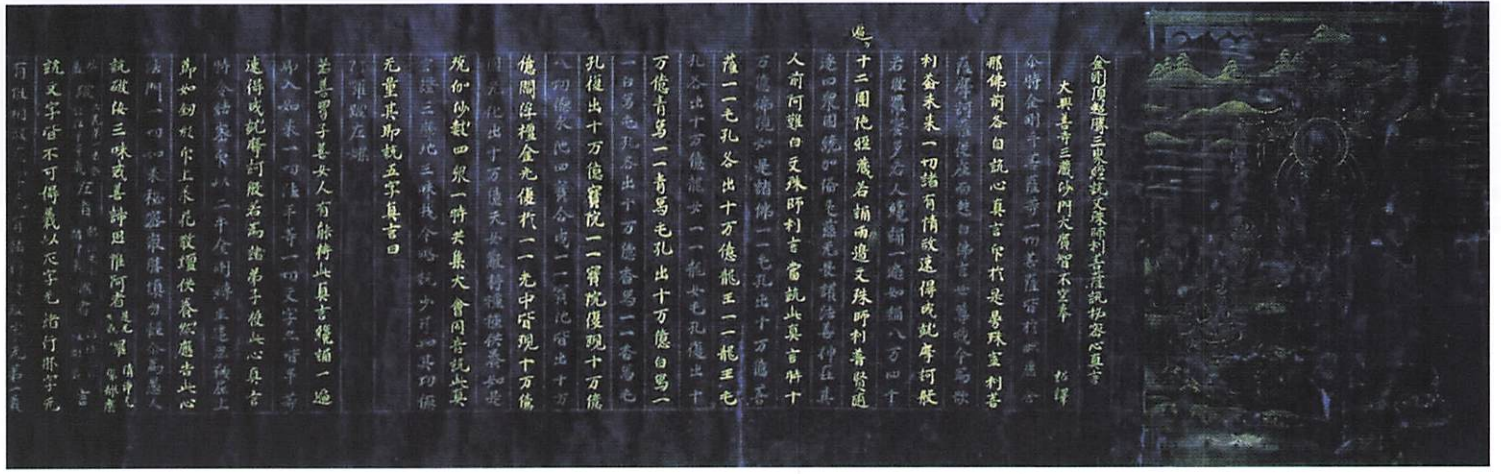 金剛頂超勝三界經說文殊師利菩薩說秘密心真言
大興善寺三蔵沙門大廣智不空奉 詔譯
尒時金剛手菩薩等一切菩薩皆於
那佛前各自說心真言印於是曼殊室利菩
薩摩訶薩從座而起白佛言世尊我今為欲
利益未来一切諸有情故速得成就摩訶般
若波羅蜜多若人纔誦一遍如誦八万四千
十二圍陀經蔵若誦兩遍文殊師利普賢随
逐四衆圍繞加備是慈无畏護法善神在其
人前阿難白文殊師利言當說此真言時十
万億佛院如是諸佛一一毛孔出十万億菩
薩一一毛孔各出十万億龍王一一龍王毛
孔各出十万億龍女一一龍女毛孔復出十
万億青馬一一青馬毛孔出十万億白馬一
一白馬毛孔各出十万億香馬一一香馬毛
孔復出十万億寶院一一寶院復現十万億
八功德水池四寶合成一一寶池皆出十万
億閻浮檀金光復於一一光中皆現十万億
光化出十万億天女散持種種供養如是
殑伽沙數四衆一時共集大會同音說此真
言證三摩地三昧我今略說少分四其功德
无量其即說五字真言曰
阿羅跛左曩
若善男子善女人有能持此真言纔誦一遍
即入如来一切法平等一切文字亦皆平等
速得成就摩訶般若為諸弟子授此心真言
時令結密印以二手金剛縛並建忍願屈上
節如釼於印上承花散壇供養然應告此心
法門一切如来秘密最勝慎勿輕令為愚人
說破汝三昧或善諦思惟阿者
說文字皆不可得義以左字无諸行跛字无